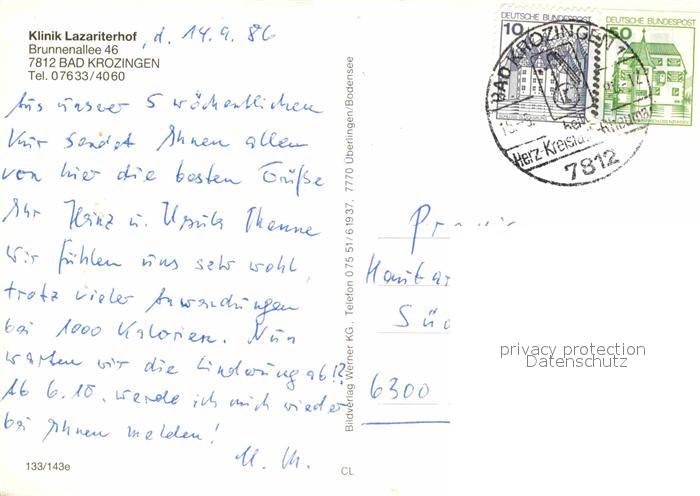 Klinik Lazariterhof
Brunnenallee 46
7812 BAD KROZINGEN
Tel. 07633/4060
, d. 14.9.86
Aus unser 5 wöchentlichen
Kur sendet Ihnen allen
von hier die besten Grüße
Ihr Heinz u. Ursula
Wir fühlen uns sehr wohl,
trotz vieler Anwendungen
bei 1000 Kalorien. Nun
warten wir die Linderung ab!?
Ab 6.10. werde ich mich wieder
bei Ihnen melden!
133/143e
CL
Bildverlag Werner KG., Telefon 0 75 51/6 19 37, 7770 Überlingen/Bodensee
DEUTSCHE BUNDESPOST
10
DEUTSCHE BUNDESPOST
50
BAD KROZINGEN 1
Herz-Kreislauf-Rheuma
7812
Hauta
Süd
6300
privacy protection
Datenschutz